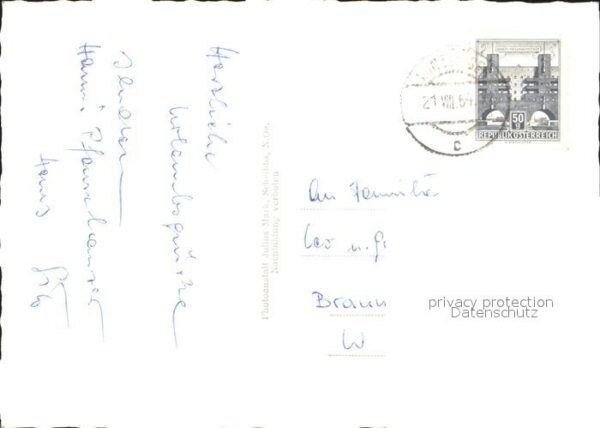 Herzliche
Urlaubsgrüße
senden
Hanni
Hans
Photoanstalt Julius Mark, Scheibbs, N.Oe.
Nachbildung verboten
21.VIII.64
c
50
g
REPUBLIK ÖSTERREICH
An Familie
Leo u.
Braun
W
privacy protection
Datenschutz